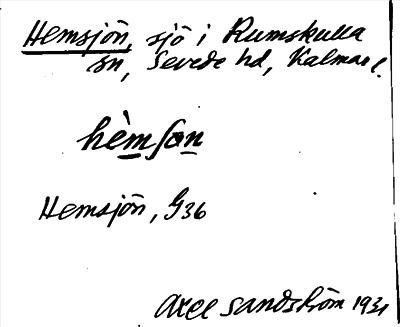 Hemsjön, sjö i Rumskulla
sn, Sevede hd, Kalmar l.
hèmʃɑn
Hemsjön, G36
Axel Sandström 1931